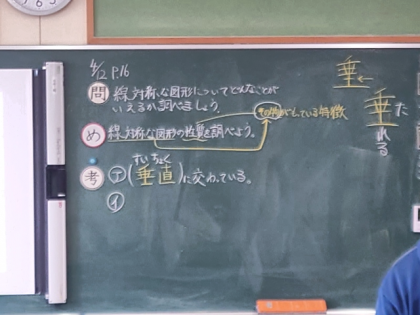 4/12 P.16
問 線対称な図形についてどんなことが
いえるか調べましょう。
め 線対称な図形の性質を調べよう。
その図形がもっている特徴
考 ㋐(垂直)に交わっている。
すいちょく
㋑
垂←
垂れる
た